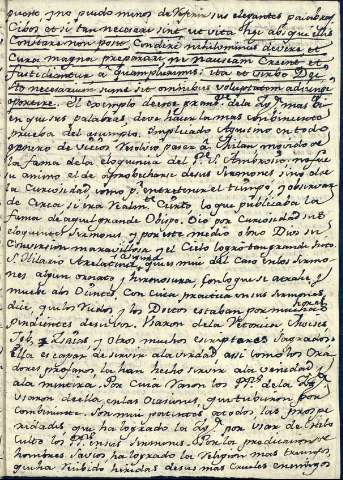 puesto, no puedo menos de referir sus elegantes palabras
Cibos etsi tan necesarii sint ut vita hujus absque illis
Constare non posit Condere nihilominus devere et
Cura magna preparare, ni nauseam creent et
fastideantur a quampluribus; ita et verbo Dei
to necesarium sane sit omnibus voluptatem adjungere
oportere. El exemplo de este grande de la Yga mas bi
en que sus palabras, deve hacer la mas combincente
prueba del asumpto. Implicado Agustino en todo
genero de vicios resolvio pasar a Milan movido de
la fama de la eloquencia del Pe. S. Ambrosio, no fue
su animo el de aprobecharse desus sermones sino el de
la Curiosidad como pa entretener el tiempo, y observar
de Cerca si era realmte Cierto lo que publicaba la
fama de aquel grande Obispo. Oio por Curiosidad sus
eloquentes sermones, y por este medio obro Dios su
Conversion maravillosa y el Cielo logro tan grande Santo
S. Hilario Arelatense asegura que es mui del Caso en los sermo-
nes algun ornato y hermosura, con lo que se atrahe y
mueve a los Oientes. Con cuia practica en sus sermones,
dice, que los rudos, y los Doctos estaban por muchas horas
pendientes de su voz. Usaron de la retorica Moises
Job, Isaias, y otros muchos escriptores sagrados.
Ella es capaz de servir a la verdad, asi como los Ora
dores profanos, la han hecho servir a la vanidad y
a la mentira. Por Cuia razon los PPs. de la Yga
usaron de ella, en las Ocasiones, que tubieron por
Combeniente. Son mui patentes, a todos, las prospe
ridades que ha logrado la Yga por usar de este
culto los PPs. en sus sermones. Por la predicacion de
hombres sabios, ha logrado la Religion mas triunfos,
que ha recibido heridas de sus mas Crueles enemigos